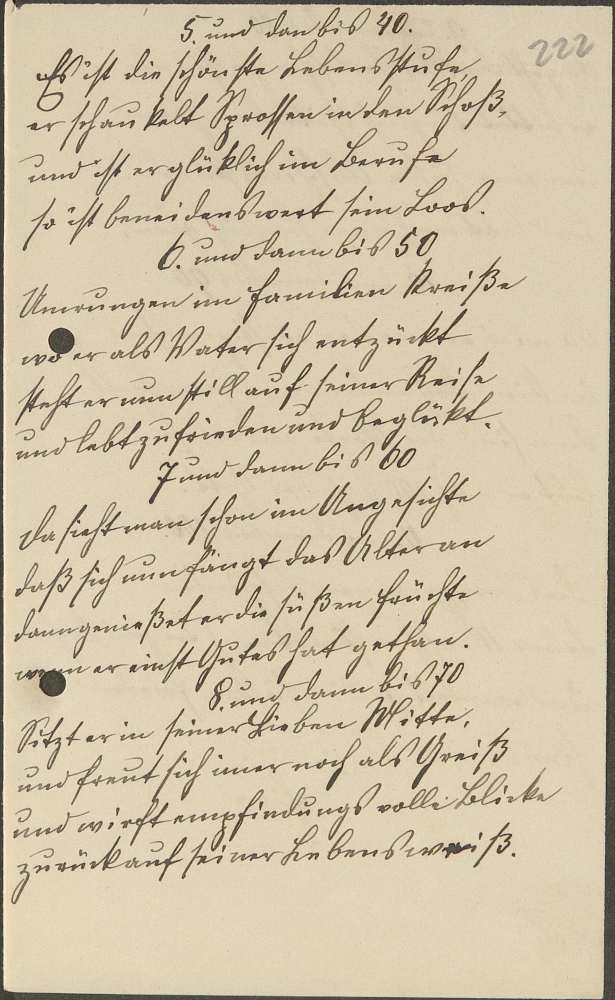 5. und dan bis 40.
222
Es ist die schönste Lebensstufe,
er schaukelt Sprossen in den Schoß,
und ist er glüklich im Berufe
so ist beneidenswert sein Loos.
6. und dann bis 50
Umrungen im Familien Kreiße
wo er als Vater sich entzückt
steht er nun still auf seiner Reise
und lebt zufrieden und beglükt.
7 und dann bis 60
Da sieht man schon im Angesichte
daß sich nun fängt das Alter an
dann genießet er die süßen Früchte
wenn er einst Gutes hat gethan.
8. und dann bis 70
Sitzt er in seiner Lieben Mitte,
und freut sich imer noch als Greiß
und wirft empfindungsvolle Blicke
zurück auf seiner Lebensweiß.